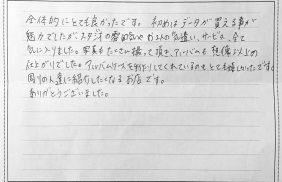 全体的にとても良かったです。初めはデータが買える事が
魅力でしたがスタジオの雰囲気やお人の気遣い、サービス、全て
気に入りました。写真もたくさん撮って頂き、アルバムも想像以上の
仕上がりでした。アルバムケースを手作りしてくれているのもとても嬉しかったです。
周りの人達に紹介したくなるお店です。
ありがとうございました。